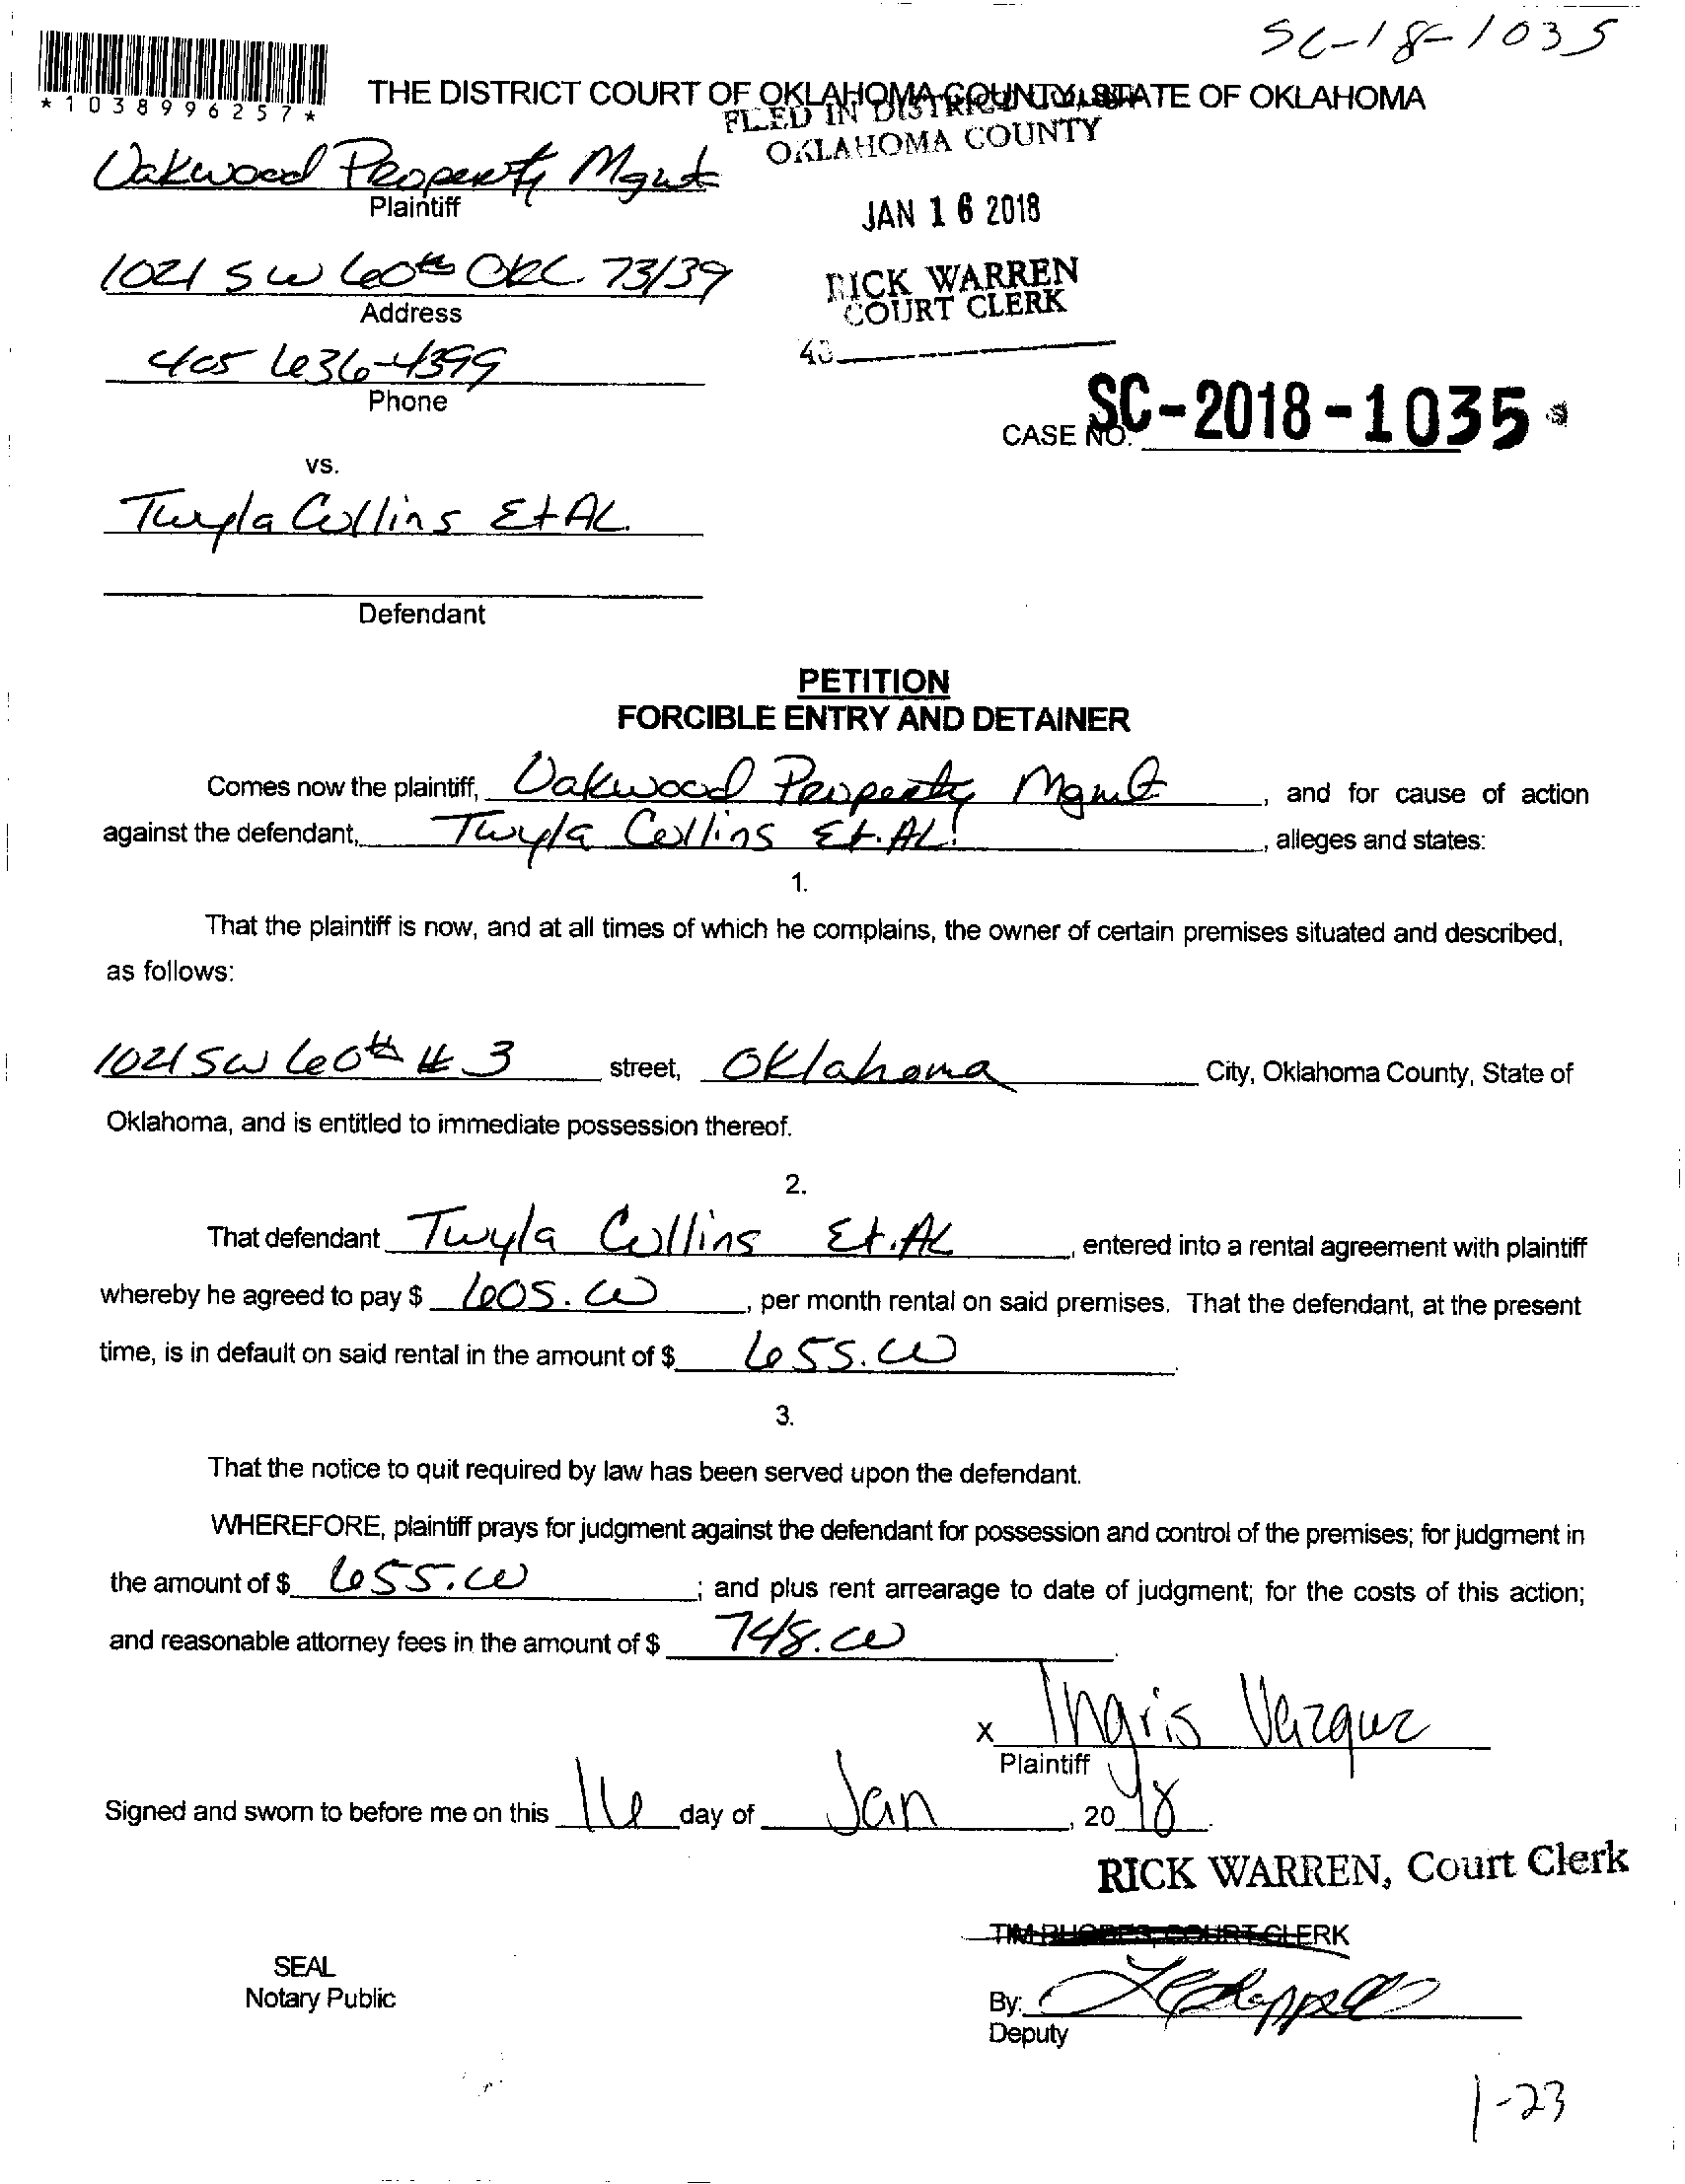 SC-18-1035
*1038996257*
THE DISTRICT COURT OF OKLAHOMA COUNTY, STATE OF OKLAHOMA
FILED IN DISTRICT COURT
OKLAHOMA COUNTY
Oakwood Property Mgmt
Plaintiff
JAN 16 2018
1021 SW 60th OKC 73139
Address
RICK WARREN
COURT CLERK
405 636-4399
Phone
43
CASE NO. SC-2018-1035
vs.
Twyla Collins Et AL.
Defendant
PETITION
FORCIBLE ENTRY AND DETAINER
Comes now the plaintiff, Oakwood Property Mgmt, and for cause of action
against the defendant, Twyla Collins Et. AL., alleges and states:
1.
That the plaintiff is now, and at all times of which he complains, the owner of certain premises situated and described,
as follows:
1021 SW 60th # 3 street, Oklahoma City, Oklahoma County, State of
Oklahoma, and is entitled to immediate possession thereof.
2.
That defendant Twyla Collins Et. AL, entered into a rental agreement with plaintiff
whereby he agreed to pay $ 605.00, per month rental on said premises. That the defendant, at the present
time, is in default on said rental in the amount of $ 655.00.
3.
That the notice to quit required by law has been served upon the defendant.
WHEREFORE, plaintiff prays for judgment against the defendant for possession and control of the premises; for judgment in
the amount of $ 655.00; and plus rent arrearage to date of judgment; for the costs of this action;
and reasonable attorney fees in the amount of $ 748.00.
x Ingris Vazquez
Plaintiff
Signed and sworn to before me on this 16 day of Jan, 2018.
RICK WARREN, Court Clerk
TIM RHODES, COURT CLERK
SEAL
Notary Public
By:
Deputy
1-23